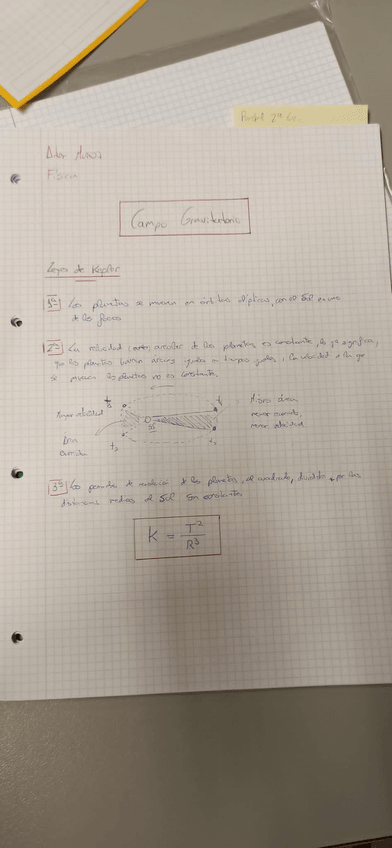 Física
Campo Gravitatorio
Leyes de Kepler
1ª Los planetas se mueven en órbitas elípticas, con el Sol en uno
de los focos
2ª La velocidad areolar de los planetas es constante, lo que significa,
que los planetas barren áreas iguales a tiempos iguales, la velocidad a la que
se mueven los planetas no es constante.
Mayor velocidad
Misma área
menor
menor velocidad
Sol
t₃
t₂
3ª Los periodos de de los planetas, al cuadrado, dividido por las
distancias medias al Sol son constantes
K = T² / R³